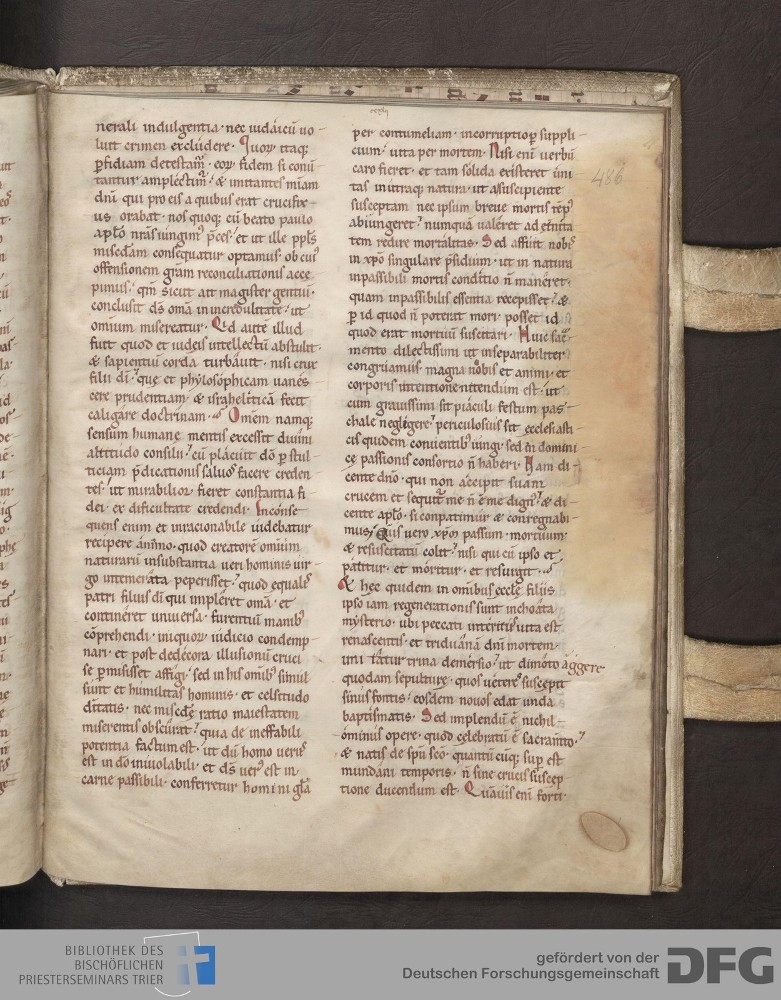 nerali indulgentia · nec iudaicū uo
luit crimen excludere · Quoꝝ itaq;
ꝑfidiam detestam̃ · eoꝝ fidem si conu̾
tantur amplectim̃ · & imitantes miam
dn̄i qui pro eis a quibus erat crucifix
us orabat · nos quoq; cū beato paulo
aplō nr̄as iungim᷒ p̄ces · et ut ille ppl̄s
misc̄dam consequatur optamus · ob cui᷒
offensionem gr̄am reconciliationis acce
pimus · qm̄ sicut ait magister gentiū ·
conclusit ds̄ om̄a in incredulitate · ut
omnium misereatur · Qid autē illud
fuit quod et iudeis intellectū abstulit ·
& sapientiū corda turbauit · nisi crux
filii dī · que et phylosophicam uanes
cere prudentiam · & israheliticā fecit
caligare doctrinam · Omēm namq;
sensum humane mentis excessit diuini
altitudo consilii · cū placuit dō ꝑ stul
ticiam p̄dicationis saluos facere creden
tes · ut mirabilior fieret constantia fi
dei · ex dificultate credendi · Inconse
quens enim et irracionabile uidebatur
recipere animo · quod creatorē omium
naturarū in substantia ueri hominis uir
go intemerata peperisset · quod equalis
patri filius dī qui impleret om̄a · et
contineret uniuersa · furentiū manib᷒
cōprehendi · iniquoꝝ iudicio condemp
nari · et post dedecora illusionū cruci
se ꝑmisisset affigi · sed in his omīb᷒ simul
sunt et humilitas hominis · et celsitudo
deitatis · nec misc̄de ratio maiestatem
miserentis obscurat · quia de ineffabili
potentia factum est · ut dū homo uerus
est in dō inuiolabili · et ds̄ uer᷒ est in
carne passibili · conferretur homini gl̄a
per contumeliam · incorruptio ꝑ suppli
cium · uita per mortem · Nisi enī uerbū
caro fieret · et tam solida existeret uni
tas in utraq; natura · ut a suscipiente
susceptam nec ipsum breue mortis tēp᷒
abiungeret · numquā ualeret ad et̄nita
tem redire mortalitas · Sed affuit nobis
in xp̄o singulare p̄sidium · ut in natura
inpassibili mortis conditio n̄ maneret ·
quam inpassibilis essentia recepisset · &
ꝑ id quod n̄ poterat mori · posset id
quod erat mortuū suscitari · Huic sac̄
mento dilectissimi ut inseparabiliter
congruamus · magna nobis et animi · et
corporis intentione nitendum est · ut
cum grauissimi sit piaculi festum pas
chale neglegere · periculosius sit ecclesiasti
cis quidem conuentib᷒ iungi · sed in domini
ce passionis consortio n̄ haberi · Nam di
cente dn̄o · qui non accipit suam
crucem et sequit̄ me n̄ ē me dign᷒ · & di
cente aplō · si conpatimur & conregnabi
mus · Qis uere xp̄m passum · mortuum ·
& resuscitatū colit · nisi qui cū ipso et
patitur · et moritur · et resurgit ·
& hec quidem in omībus eccle filiis
ipso iam regenerationis sunt inchoata
mysterio · ubi peccati interit᷒ uita est
renascentis · et triduanā dn̄i mortem
imitatur trina demersio · ut dimoto aggere
quodam sepulture · quos ueteres suscepit
sinus fontis · eosdem nouos edat unda
baptismatis · Sed implendū ē nichil
ominus opere · quod celebratū ē sacram̄to ·
& natis de spū scō · quantū cūq; sup est
mundani temporis · n̄ sine crucis suscep
tione ducendum est · Quāuis enī forti
486
BIBLIOTHEK DES
BISCHÖFLICHEN
PRIESTERSEMINARS TRIER
gefördert von der
Deutschen Forschungsgemeinschaft
DFG